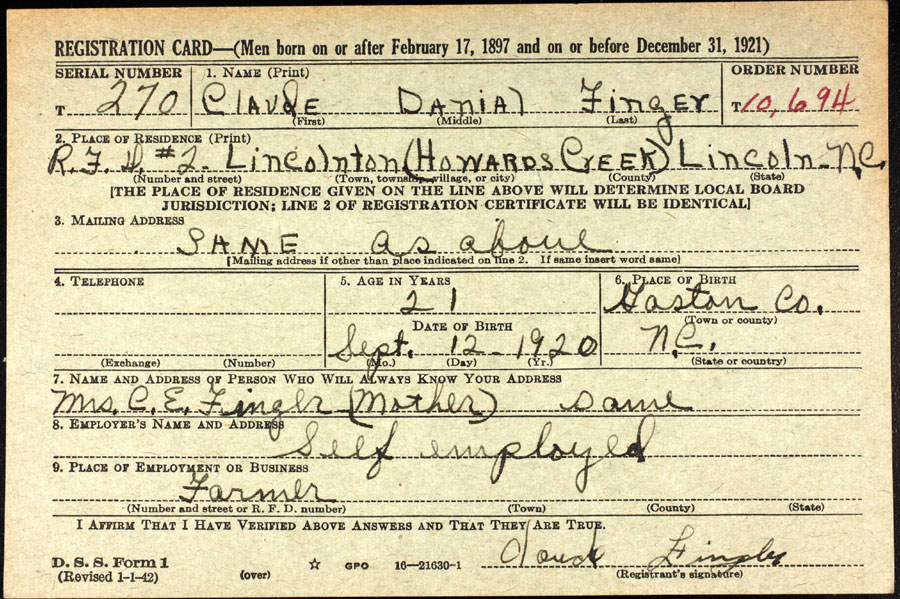 REGISTRATION CARD—(Men born on or after February 17, 1897 and on or before December 31, 1921)
SERIAL NUMBER 1. NAME (Print) ORDER NUMBER
T 270 Claude Danial Finger T10,694
(First) (Middle) (Last)
2. PLACE OF RESIDENCE (Print)
R.F.D. #2. Lincolnton (Howards Creek) Lincoln - N.C.
(Number and street) (Town, township, village, or city) (County) (State)
[THE PLACE OF RESIDENCE GIVEN ON THE LINE ABOVE WILL DETERMINE LOCAL BOARD
JURISDICTION; LINE 2 OF REGISTRATION CERTIFICATE WILL BE IDENTICAL]
3. MAILING ADDRESS
SAME as above
[Mailing address if other than place indicated on line 2. If same insert word same]
4. TELEPHONE 5. AGE IN YEARS 6. PLACE OF BIRTH
21 Gaston Co.
(Town or county)
DATE OF BIRTH
Sept. 12 - 1920 N.C.
(Exchange) (Number) (Mo.) (Day) (Yr.) (State or country)
7. NAME AND ADDRESS OF PERSON WHO WILL ALWAYS KNOW YOUR ADDRESS
Mrs. C. E. Finger (Mother) same
8. EMPLOYER'S NAME AND ADDRESS
Self employed
9. PLACE OF EMPLOYMENT OR BUSINESS
Farmer
(Number and street or R. F. D. number) (Town) (County) (State)
I AFFIRM THAT I HAVE VERIFIED ABOVE ANSWERS AND THAT THEY ARE TRUE.
D. S. S. Form 1
(Revised 1-1-42) (over) ☆ GPO 16—21630-1
Finger
(Registrant's signature)